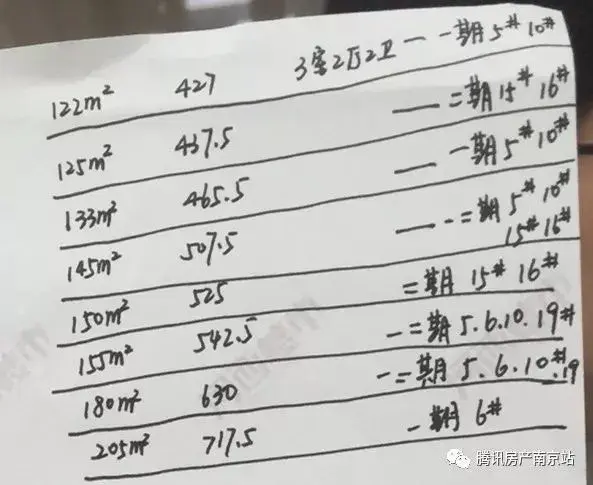 122m² 427 3室2厅2卫 — 一期 5# 10#
125m² 437.5 — 二期 15# 16#
133m² 465.5 — 一期 5# 10#
145m² 507.5 — 一二期 5# 10#
15# 16#
150m² 525 二期 15# 16#
155m² 542.5 一二期 5.6.10.19#
180m² 630 一二期 5.6.10#.19
205m² 717.5 一期 6#
腾讯房产南京站